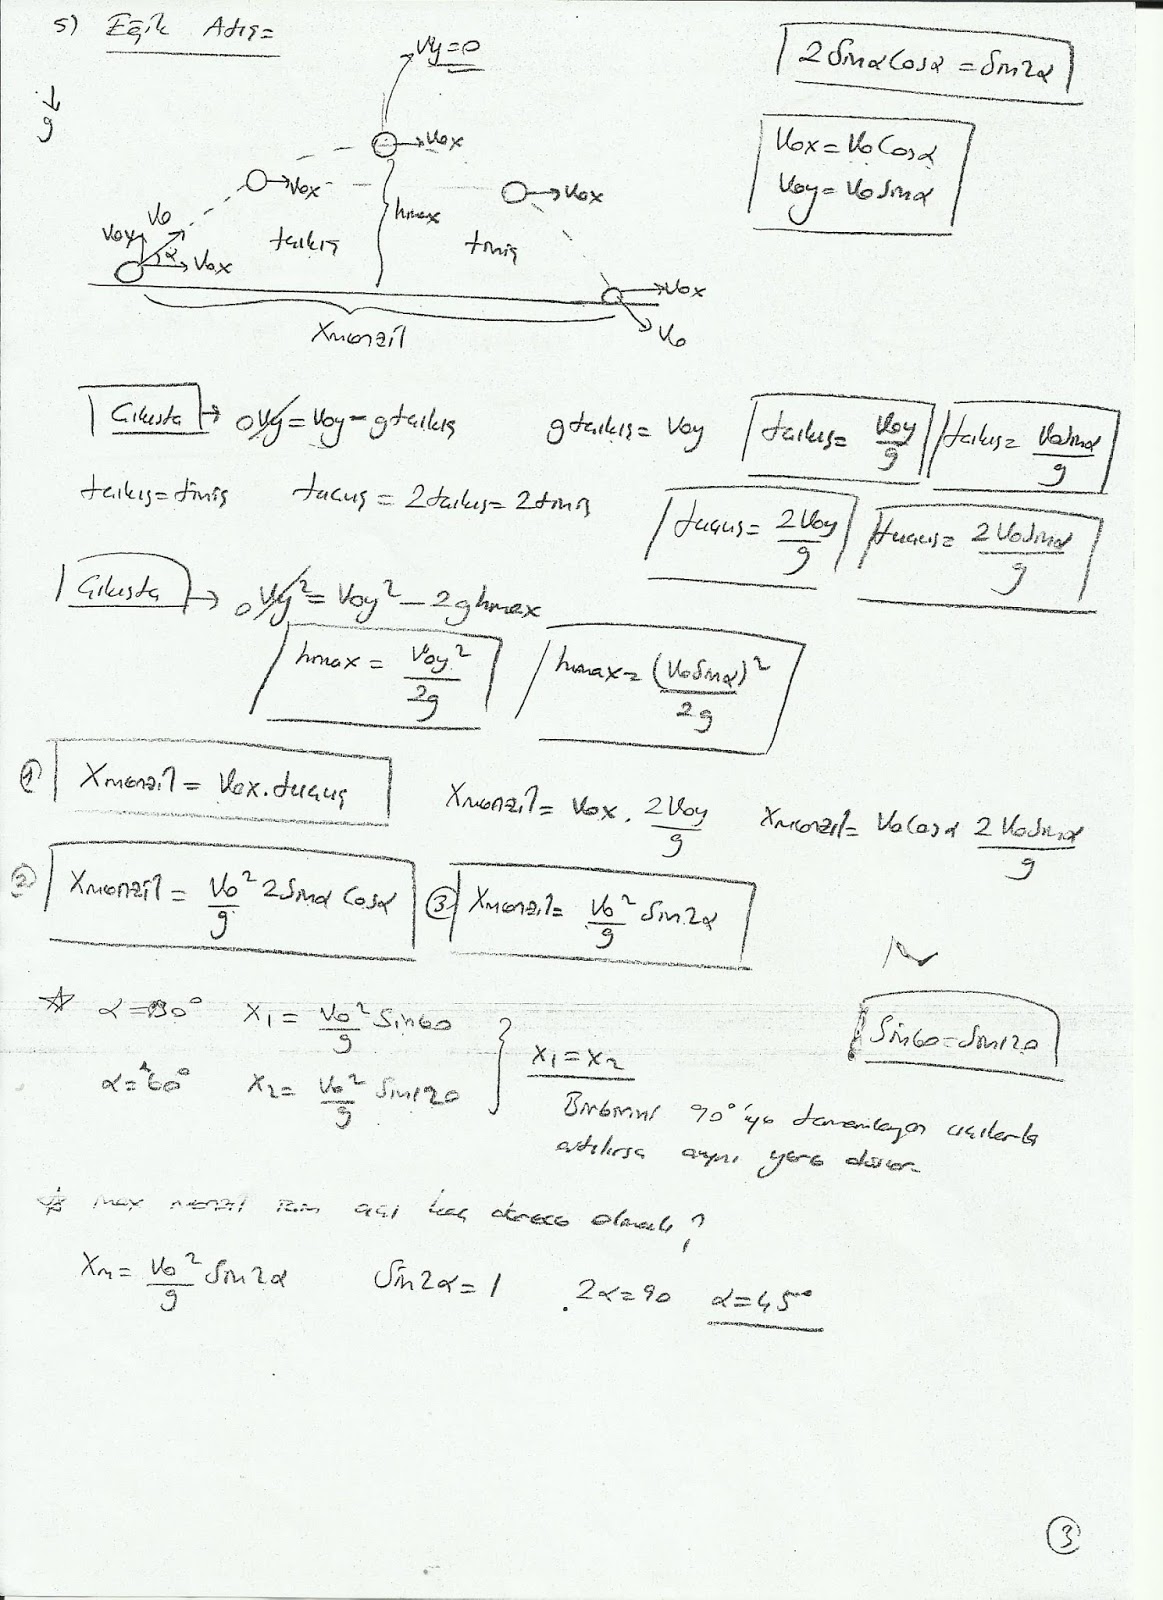 5) Eğik Atış=
2SinαCosα = Sin2α
g
Vy=0
Vox = VoCosα
Voy = VoSinα
Vox
Vox
Vox
hmax
Vo
Vox
α
Vox
tçıkış
tiniş
Vox
Vo
Xmenzil
Çıkışta → 0 Vy = Voy - gtçıkış gtçıkış = Voy tçıkış = Voy/g tçıkış = VoSinα/g
tçıkış = tiniş tuçuş = 2tçıkış = 2tiniş tuçuş = 2Voy/g tuçuş = 2VoSinα/g
Çıkışta → 0 Vy² = Voy² - 2ghmax
hmax = Voy²/2g hmax = (VoSinα)²/2g
① Xmenzil = Vox.tuçuş Xmenzil = Vox . 2Voy/g Xmenzil = VoCosα 2VoSinα/g
② Xmenzil = Vo²/g 2Sinα Cosα ③ Xmenzil = Vo²/g Sin2α
☆ α=30° X1 = Vo²/g Sin60
Sin60=Sin120
α=60° X2 = Vo²/g Sin120
X1 = X2
Birbirini 90°'ye tamamlayan açılarla
atılırsa aynı yere düşer.
☆ Max menzil için açı kaç derece olmalı?
Xm = Vo²/g Sin2α Sin2α = 1 2α=90 α=45°
③